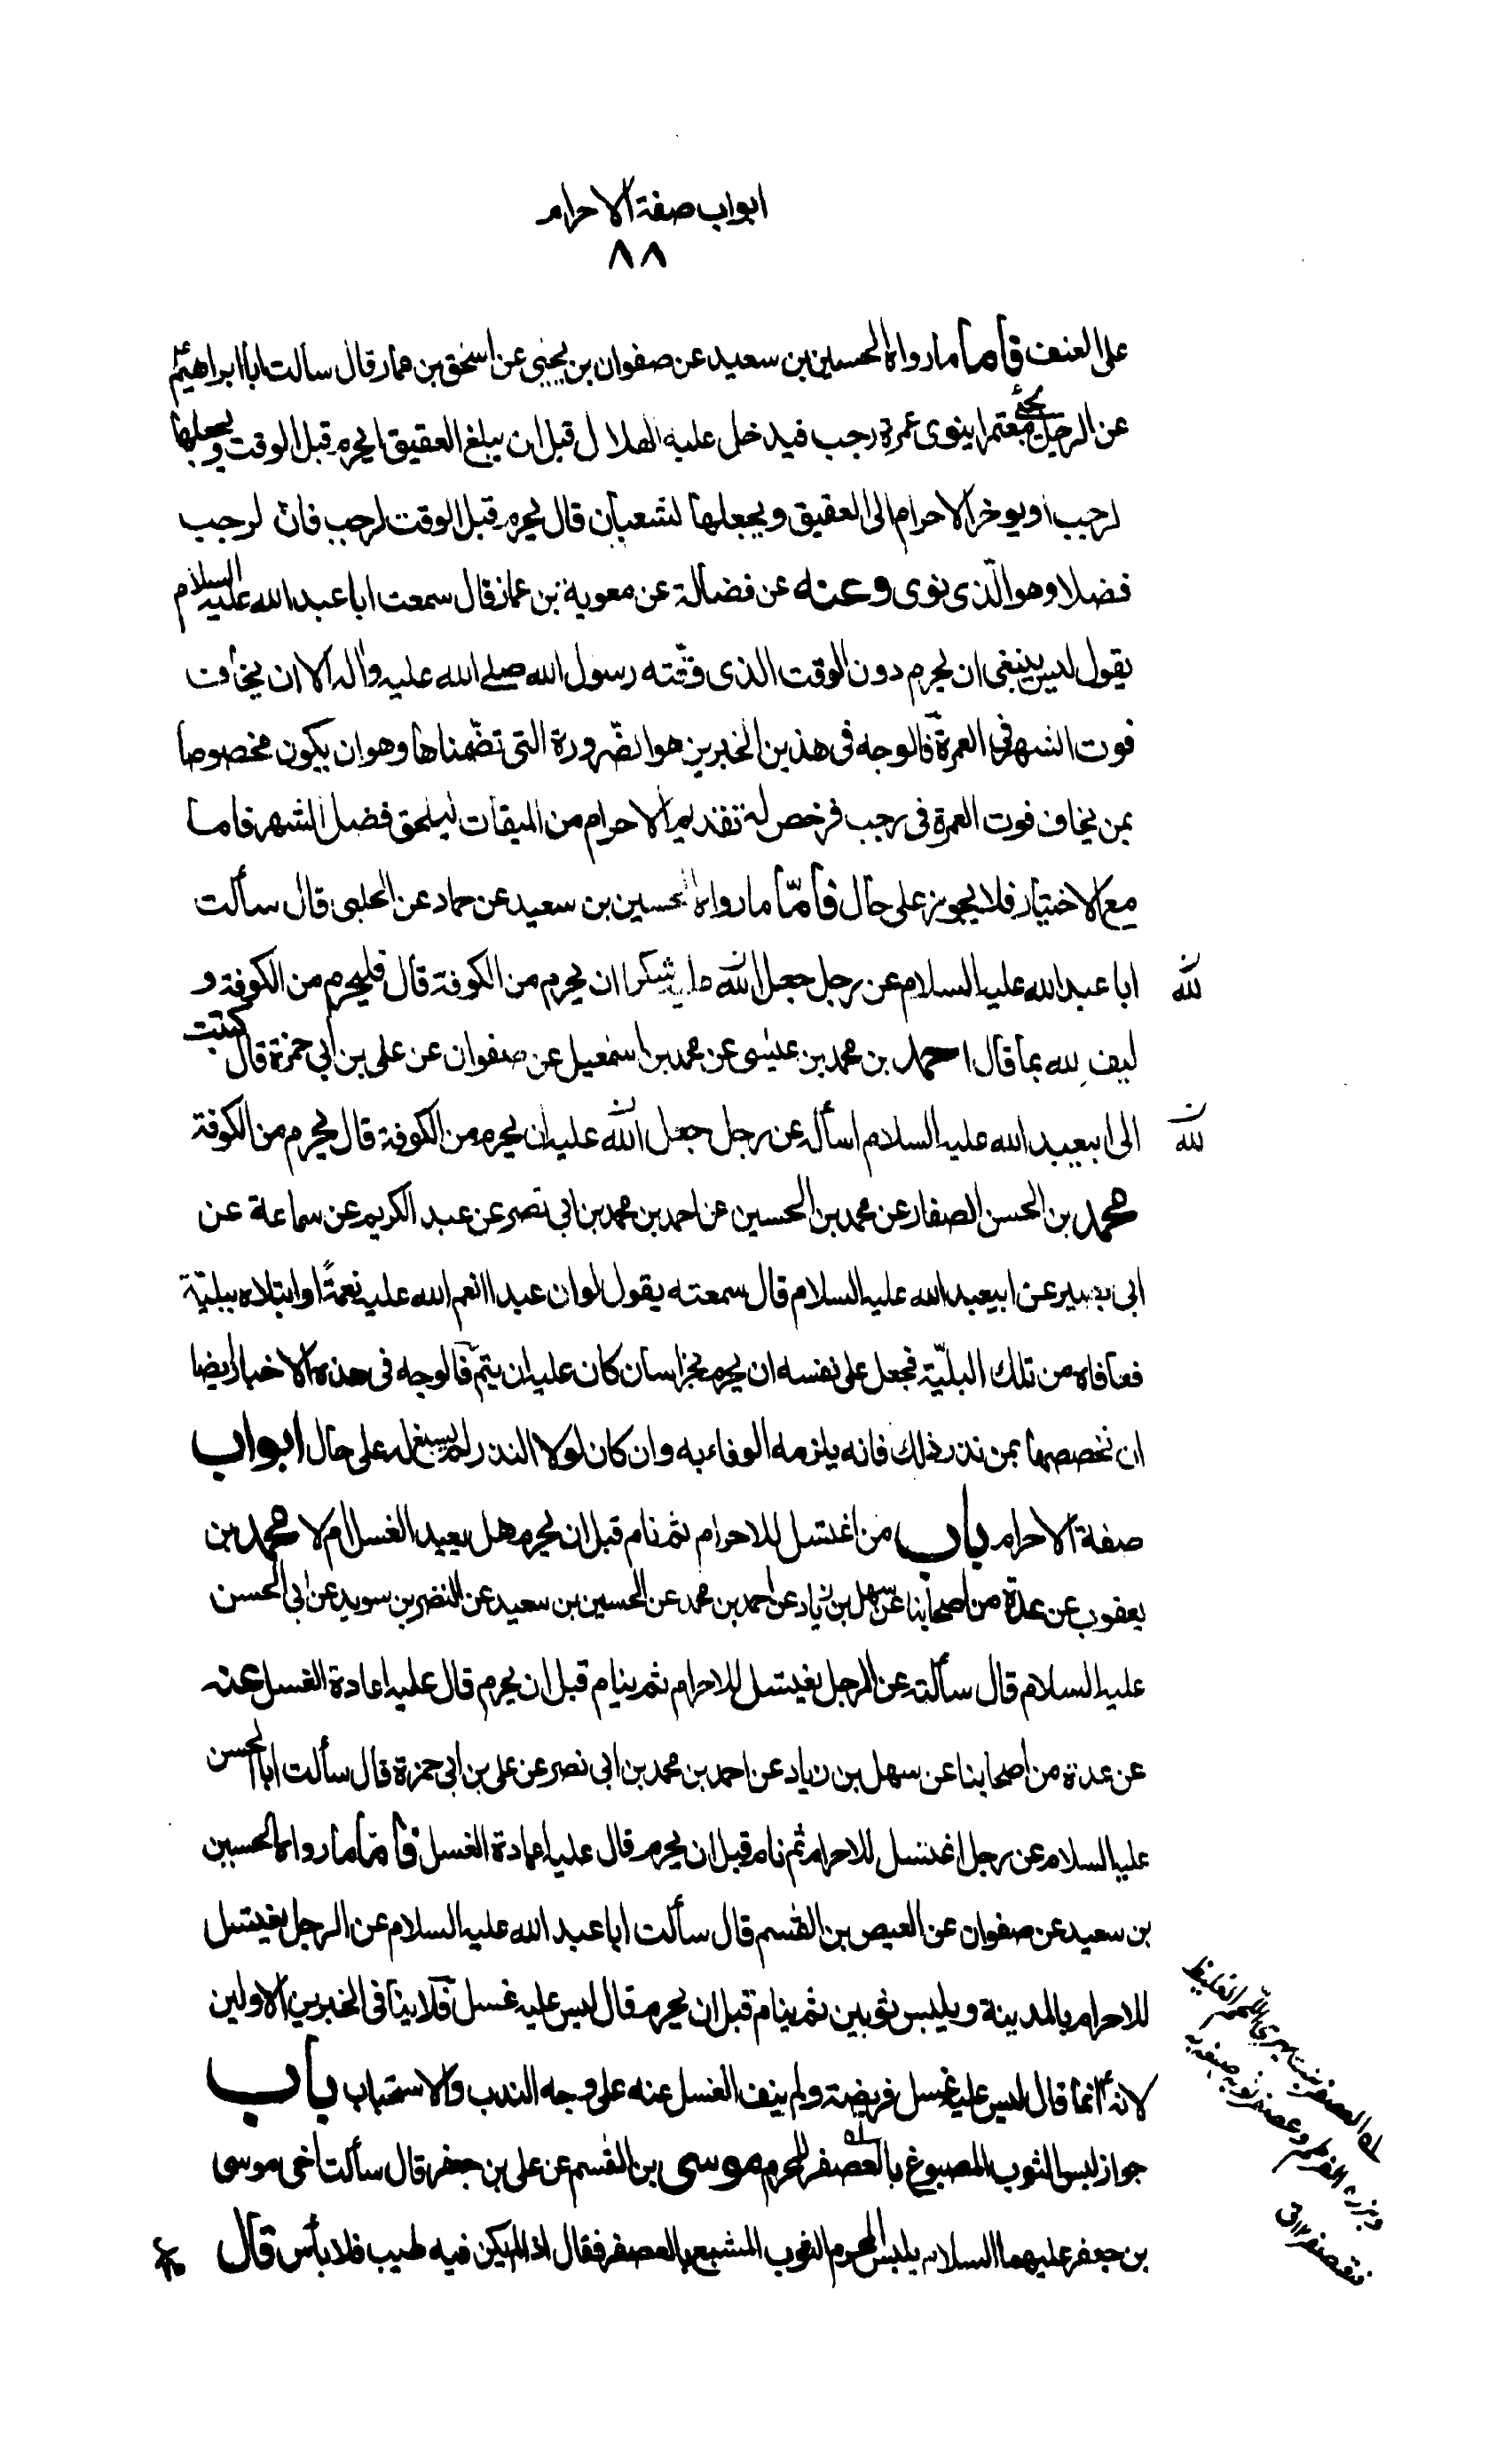 ابواب صفة الاحرام
٨٨
على العنف فاما ما رواه الحسين بن سعيد عن صفوان بن يحيى عن اسحق بن عمار قال سالت ابا ابراهيم ع
عن الرجل يجئ معتمرا ينوى عمرة رجب فيدخل عليه الهلال قبل ان يبلغ العقيق ايحرم قبل الوقت ويجعلها
لرجب او يوخر الاحرام الى العقيق ويجعلها لشعبان قال يحرم قبل الوقت لرجب فان لرجب
فضلا وهو الّذى نوى وعنه عن فضالة عن معوية بن عمار قال سمعت ابا عبد الله عليه السلام
يقول ليس ينبغى ان يحرم دون الوقت الذى وقّته رسول الله صلى الله عليه واله الا ان يخاف
فوت الشهر فى العمرة فالوجه فى هذين الخبرين هو الضّرورة التى تضّمناها وهو ان يكون مخصوصا
بمن يخاف فوت العمرة فى رجب فرخص له تقديم الاحرام من الميقات ليلحق فضل الشهر فاما
مع الاختيار فلا يجوز على حال فامّا ما رواه الحسين بن سعيد عن حماد عن الحلبى قال سألت
ابا عبد الله عليه السلام عن رجل جعل الله عليه شكرا ان يحرم من الكوفة قال فليحرم من الكوفة و
لله ن
ليف لله بما قال احمد بن محمد بن عيسى عن محمد بن اسمعيل عن صفوان عن على بن ابى حمزة قال كتبت
الى ابيعبد الله عليه السلام اسأله عن رجل جعل الله عليه ان يحرم من الكوفة قال يحرم من الكوفة
لله ن
محمد بن الحسن الصفار عن محمد بن الحسين عن احمد بن محمد بن ابى نصر عن عبد الكريم عن سماعة عن
ابى بصير عن ابيعبد الله عليه السلام قال سمعته يقول لو ان عبدا انعم الله عليه نعمةً او ابتلاه ببليّة
فعافاه من تلك البليّة فجعل على نفسه ان يحرم بخراسان كان عليه ان يتمّ فالوجه فى هذه الاخبار ايضا
ان نخصصها بمن نذر ذلك فانه يلزمه الوفاء به وان كان لولا النذر لم يسغ له على حال ابواب
صفة الاحرام باب من اغتسل للاحرام ثم نام قبل ان يحرم هل يعيد الغسل ام لا محمد بن
يعقوب عن عدة من اصحابنا عن سهل بن زياد عن احمد بن محمد عن الحسين بن سعيد عن النضر بن سويد عن ابى الحسن
عليه السلام قال سألته عن الرجل يغيتسل للاحرام ثم ينام قبل ان يحرم قال عليه اعادة الغسل عنه
عن عدة من اصحابنا عن سهل بن زياد عن احمد بن محمد بن ابى نصر عن على بن ابى حمزة قال سألت ابا الحسن
عليه السلام عن رجل اغتسل للاحرام ثم نام قبل ان يحرم قال عليه اعادة الغسل فامّا ما رواه الحسين
بن سعيد عن صفوان عن العيص بن القسم قال سألت ابا عبد الله عليه السلام عن الرجل يغيتسل
للاحرام بالمدينة ويلبس ثوبين ثم ينام قبل ان يحرم قال ليس عليه غسل فلا ينافى الخبرين الاولين
لانه انما قال ليس عليه غسل فريضة ولم ينف الغسل عنه على وجه الندب والاستحباب باب
جواز لبس الثوب المصبوغ بالعصفر للمحرم موسى بن القسم عن على بن جعفر قال سألت اخى موسى
بن جعفر عليهما السلام يلبس المحرم الثوب المشبع بالعصفر فقال اذا لم يكن فيه طيب فلا بأس قال
العصفر نبت يهرئ اللحم الغليظ
وبزره القرطم وعصفر ثوبه صبغه به
فتعصفر ق